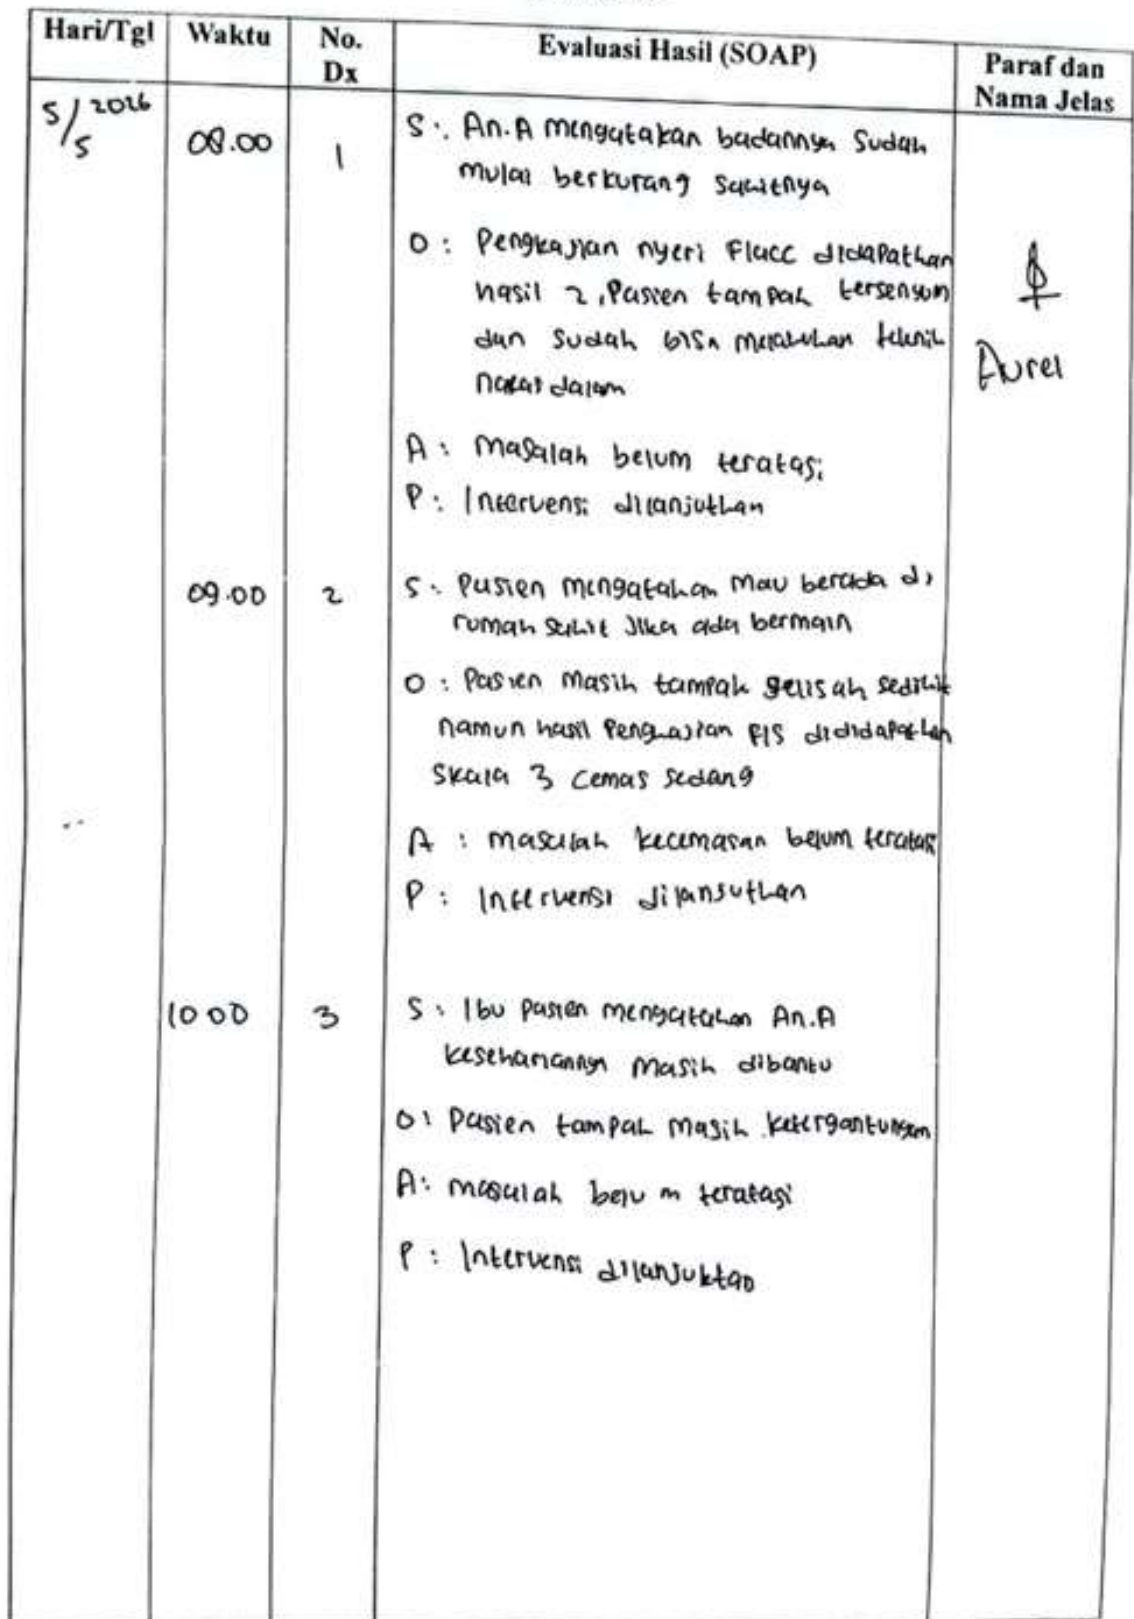 Hari/Tgl Waktu No. Dx Evaluasi Hasil (SOAP) Paraf dan Nama Jelas
5/5 2026 08.00 1 S : An.A mengatakan badannya sudah
mulai berkurang sakitnya
O : Pengkajian nyeri Flacc didapatkan
hasil 2, Pasien tampak tersenyum
dan sudah bisa melakukan teknik
nafas dalam
Aurel
A : Masalah belum teratasi
P : Intervensi dilanjutkan
09.00 2 S : Pasien mengatakan mau berada di
rumah sakit jika ada bermain
O : Pasien masih tampak gelisah sedikit
namun hasil Pengkajian FIS dididapatkan
skala 3 cemas sedang
A : masalah kecemasan belum teratasi
P : Intervensi dilanjutkan
10 00 3 S : Ibu pasien mengatakan An.A
kesehariannya masih dibantu
O : Pasien tampak masih ketergantungan
A : masalah belum teratasi
P : Intervensi dilanjuktan